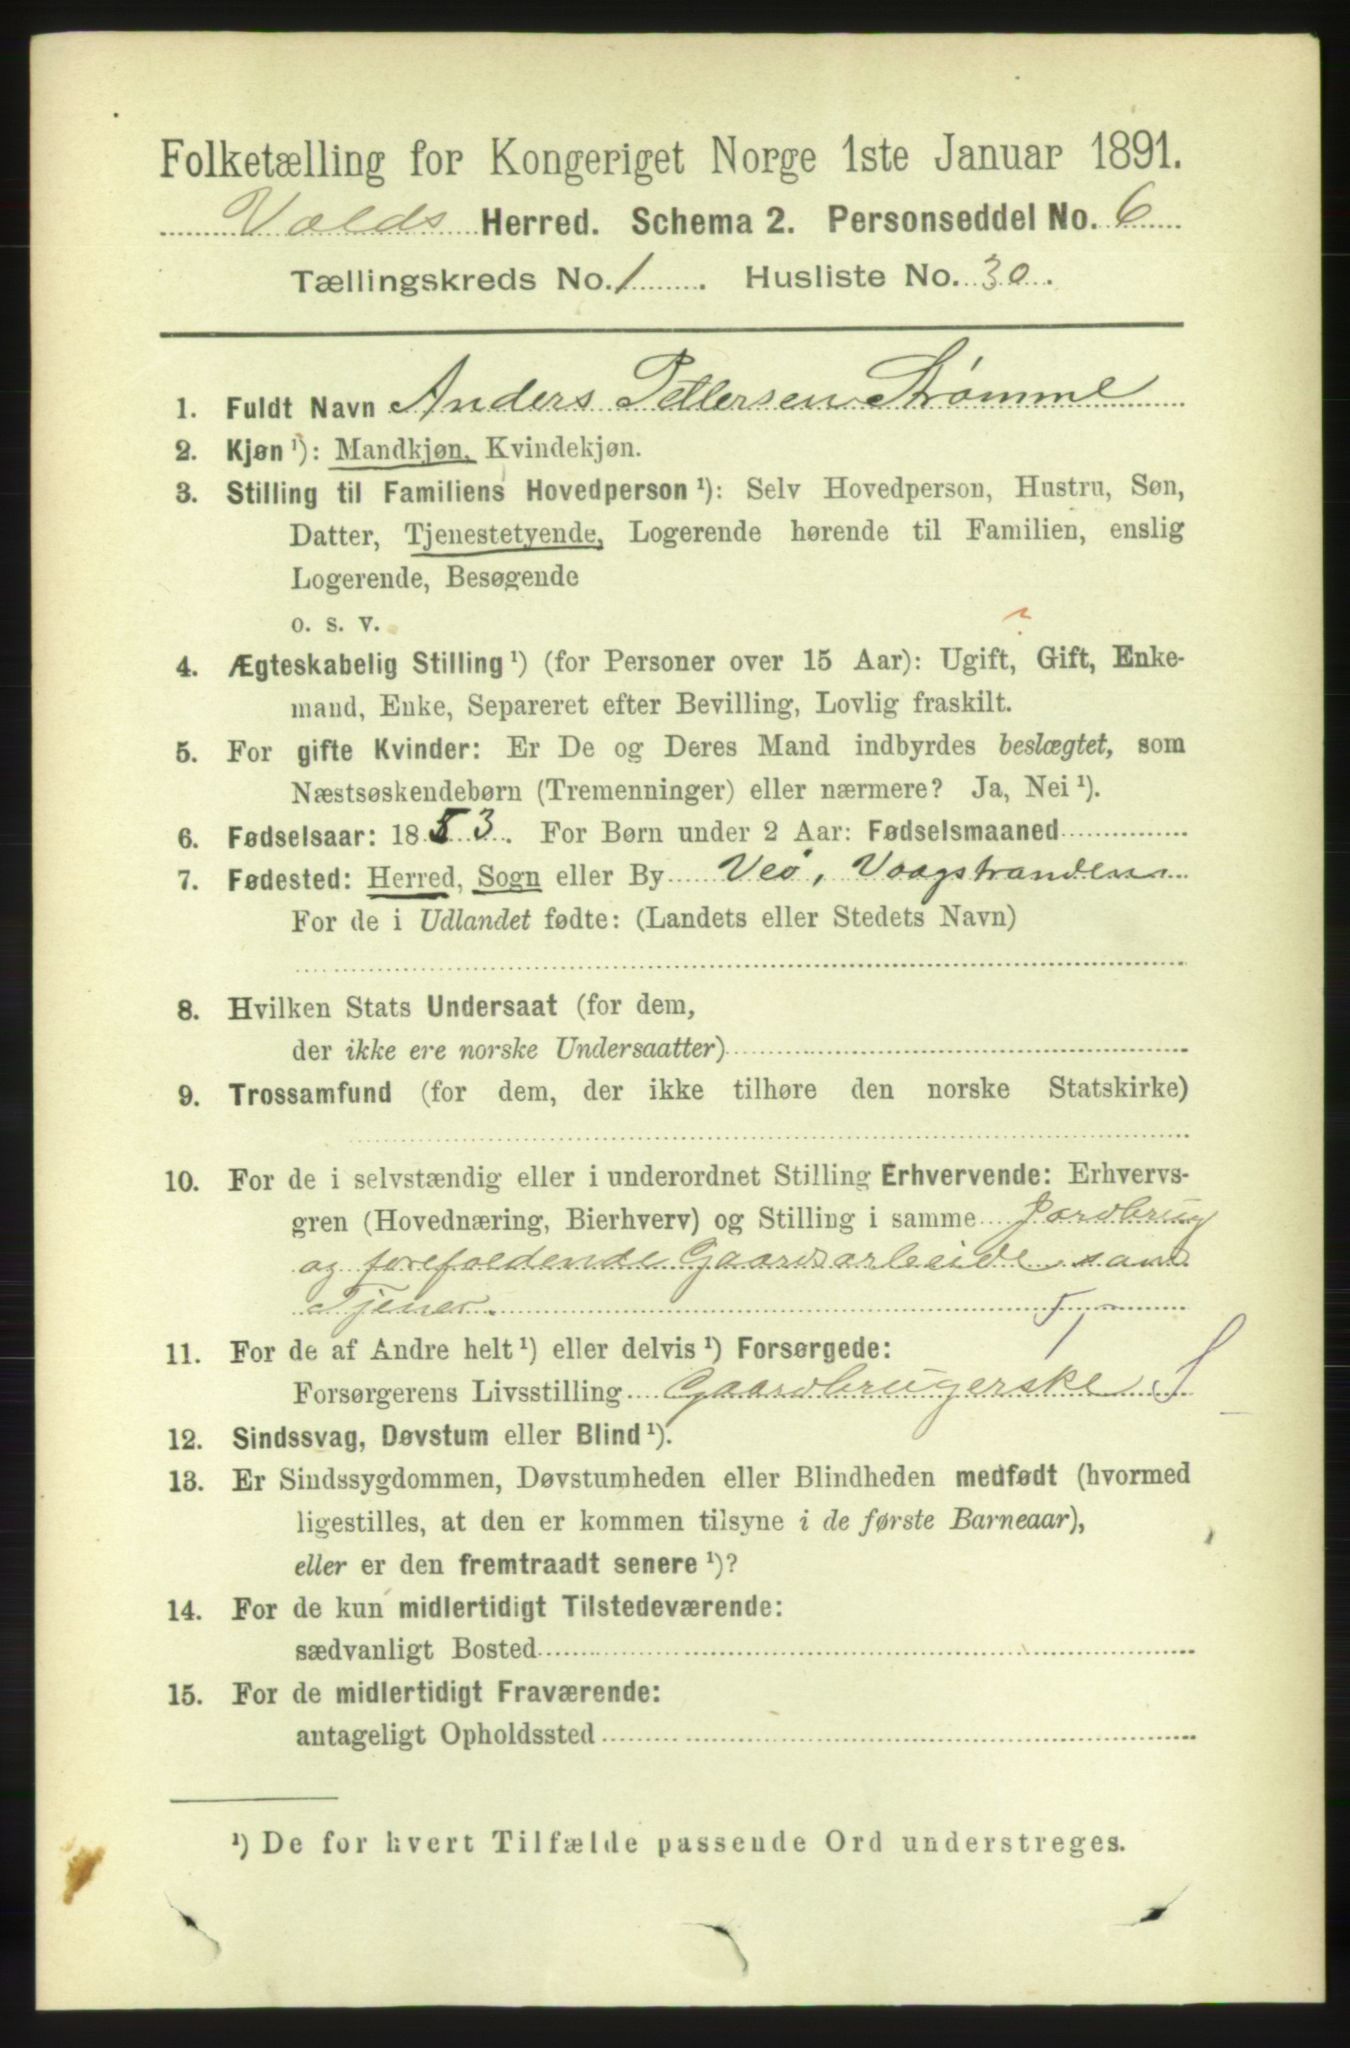 Folketælling for Kongeriget Norge 1ste Januar 1891.
Volds Herred. Schema 2. Personseddel No. 6
Tællingskreds No. 1. Husliste No. 30.
1. Fuldt Navn Anders Pettersen Strømme
2. Kjøn ¹): Mandkjøn, Kvindekjøn.
3. Stilling til Familiens Hovedperson ¹): Selv Hovedperson, Hustru, Søn,
Datter, Tjenestetyende, Logerende hørende til Familien, enslig
Logerende, Besøgende
o. s. v.
4. Ægteskabelig Stilling ¹) (for Personer over 15 Aar): Ugift, Gift, Enke-
mand, Enke, Separeret efter Bevilling, Lovlig fraskilt.
5. For gifte Kvinder: Er De og Deres Mand indbyrdes beslægtet, som
Næstsøskendebørn (Tremenninger) eller nærmere? Ja, Nei ¹).
6. Fødselsaar: 1853. For Børn under 2 Aar: Fødselsmaaned
7. Fødested: Herred, Sogn eller By Veø, Vaagstranden
For de i Udlandet fødte: (Landets eller Stedets Navn)
8. Hvilken Stats Undersaat (for dem,
der ikke ere norske Undersaatter)
9. Trossamfund (for dem, der ikke tilhøre den norske Statskirke)
10. For de i selvstændig eller i underordnet Stilling Erhvervende: Erhvervs-
gren (Hovednæring, Bierhverv) og Stilling i samme Jordbrug
og forefaldende Gaardsarbeide som
Tjener.
11. For de af Andre helt ¹) eller delvis ¹) Forsørgede:
Forsørgerens Livsstilling Gaardbrugerske
12. Sindssvag, Døvstum eller Blind ¹).
13. Er Sindssygdommen, Døvstumheden eller Blindheden medfødt (hvormed
ligestilles, at den er kommen tilsyne i de første Barneaar),
eller er den fremtraadt senere ¹)?
14. For de kun midlertidigt Tilstedeværende:
sædvanligt Bosted
15. For de midlertidigt Fraværende:
antageligt Opholdssted
¹) De for hvert Tilfælde passende Ord understreges.